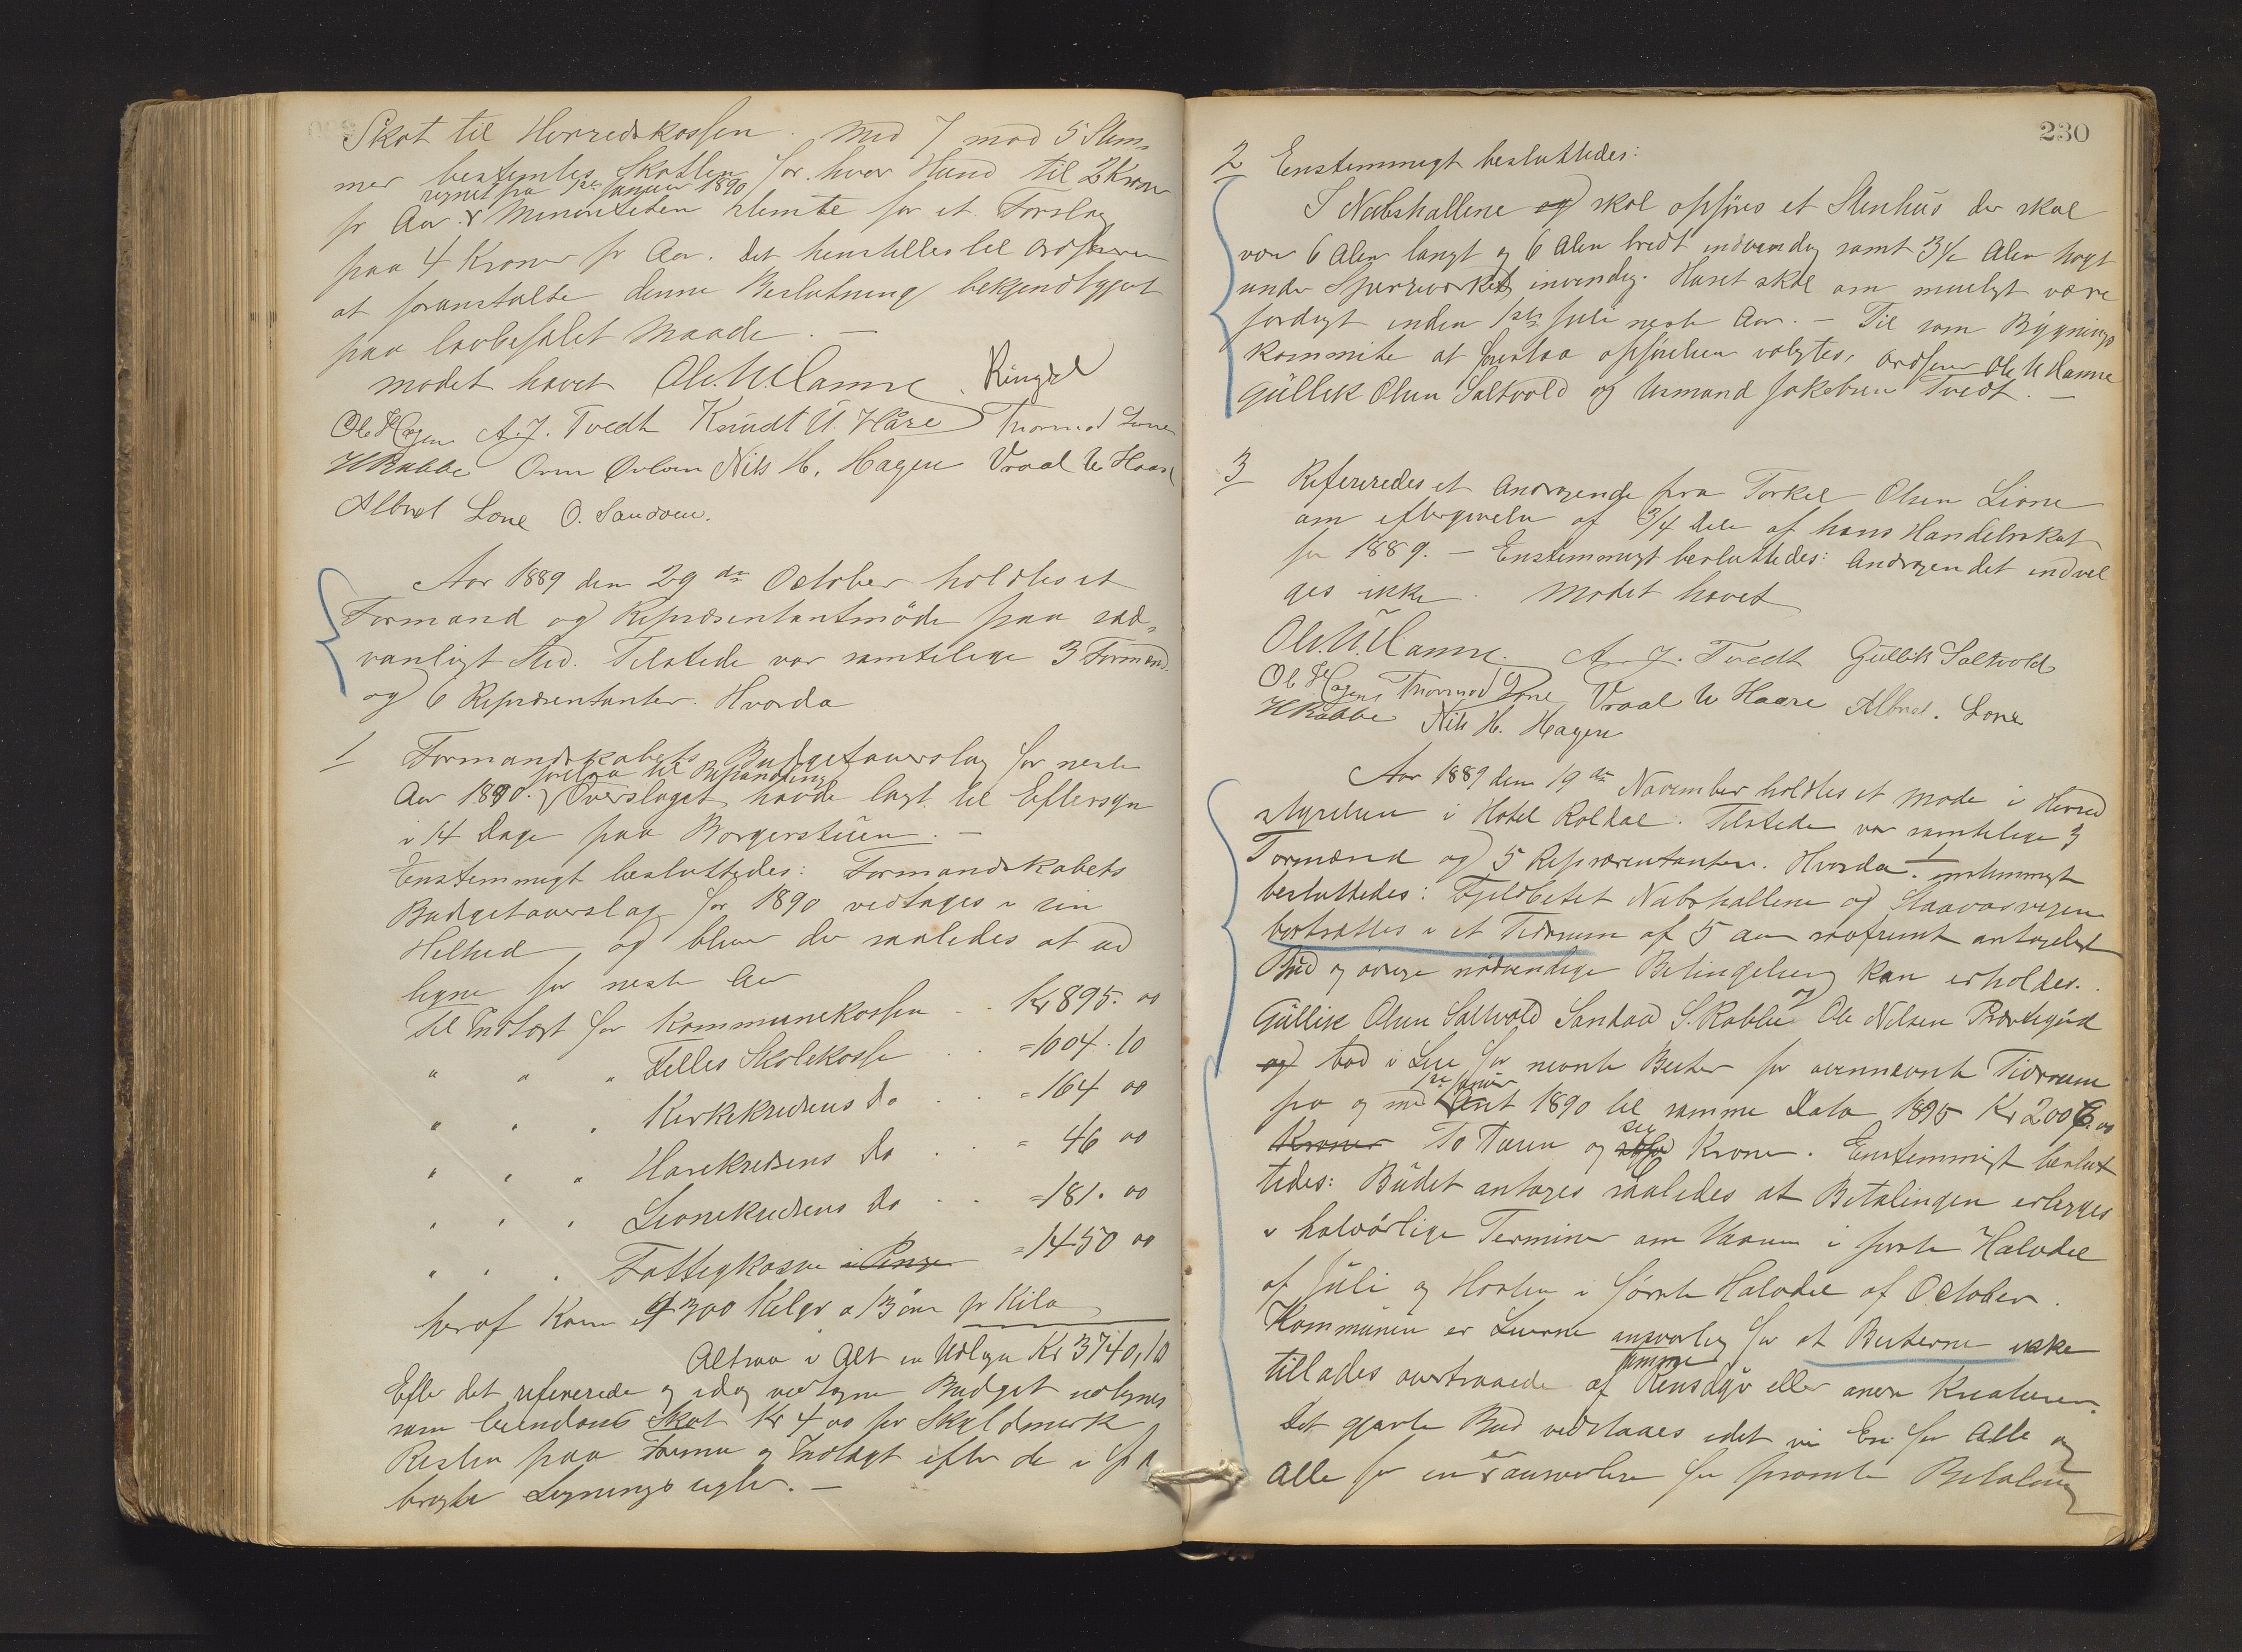 Skat til Herredskassen. Med 7 mod 5 Stem-
mer bestemtes Skatten for hver Hund til 2 Kroner
regnet fra 1ste Januar 1890
pr Aar. Minoriteten stemte for et Forslag
paa 4 Kroner pr Aar. Det henstilles til Ordføreren
at foranstalte denne Beslutning bekjendtgjort
paa lovbefalet Maade. —
Mødet hævet
Ringdal
Ole Hagen A. J. Tvedt Knudt U. Håre Thormod Lone
H Rabbe Nils H. Hagen Vraal U Haare
Albret Lone O. Sandven.
Aar 1889 den 29de October holdtes et
Formand og Repræsentantmöde paa sæd-
vanligt Sted. Tilstede var samtelige 3 Formænd
og 6 Repræsentanter. Hvorda
1 Formandskabets Budgetoverslag for neste
foretaa til Behandling
Aar 1890. Overslaget havde lagt til Eftersyn
i 14 Dage paa Borgerstuen. —
Enstemmigt besluttedes: Formandskabets
Budgetoverslag for 1890 vedtages i sin
Helhed og bliver der saaledes at ud
ligne for neste Aar
Til Indtægt for Kommunekassen . . Kr 895. 00
" " " Fælles Skolekasse . . = 1004. 10
" " " Kirkekredsens Do . . = 164 00
" " " Harekredsens Do . . = 46 00
" " " Lionekredsens Do . . = 181. 00
" " " Fattigkassen i Penge = 1450 00
heraf Korn 4300 Kilgr a 13 øre pr Kilo
Altsaa i Alt en Udlign Kr 3740,10
Efter det refererede og idag vedtagne Budget udlignes
som Skat Kr 4 00 per Skyldmark
Resten paa Formue og Indtægt efter de i
bragte Ligningsregler. —
230
2 Enstemmigt besluttedes:
I Nabshallene og skal opføres et Stenhus der skal
være 6 Alen langt og 6 Alen bredt indvendig samt 3½ Alen høgt
under Sparreværket invendig. Huset skal om mueligt være
færdigt inden 1ste Juli neste Aar. — Til som Bygnings
kommite at forestaa opførelsen valgtes, Ordfører Ole
Gullik Olsen Saltvold og Asmund Jakobsen Tvedt. —
3 Refereredes et Andragende fra Torkel Olsen Lione
om eftergivelse af 3/4 Dele af hans Handelsskat
for 1889. — Enstemmigt besluttedes: Andragendet indvil
ges ikke. Mødet hævet
A. J. Tvedt Gullik Saltvold
Ole Hagen Thormod Lone Vraal U Haare Albret. Lone
H Rabbe Nils H. Hagen
Aar 1889 den 19de November holdtes et Møde i Herred
styrelsen i Hotel Røldal. Tilstede var samtelige 3
Formænd og 5 Repræsentanter. Hvorda. 1 enstemmigt
besluttedes: Fjeldbeitet Nabshallene og Staavasvegen
bortsættes i et Tidsrum af 5 Aar saafremt antageligt
Bud og øvrige nødvendige Betingelser kan erholdes.
Gullik Olsen Saltvold S. Rabbe og Ole Nilsen Præstegård
og bød i Leie for nevnte Beiter for ovennævnte Tidsrum
1ste Januar
fra og med Aaret 1890 til samme Dato 1895 Kr 2006.00
Kroner To Tusen og sex Kroner. Enstemmigt beslut
tedes: Budet antages saaledes at Betalingen erlegges
i halvårlige Terminer om Vaaren i første Halvdel
af Juli og Høsten i første Halvdel af October.
Kommunen er Leierne ansvarlig for at Beiterne ikke
tillades overtraaede af tamme Rensdyr eller andre Kreaturer.
Det gjorte Bud vedstaaes idet vi En for Alle og
Alle for en er ansvarlige for promte Betaling